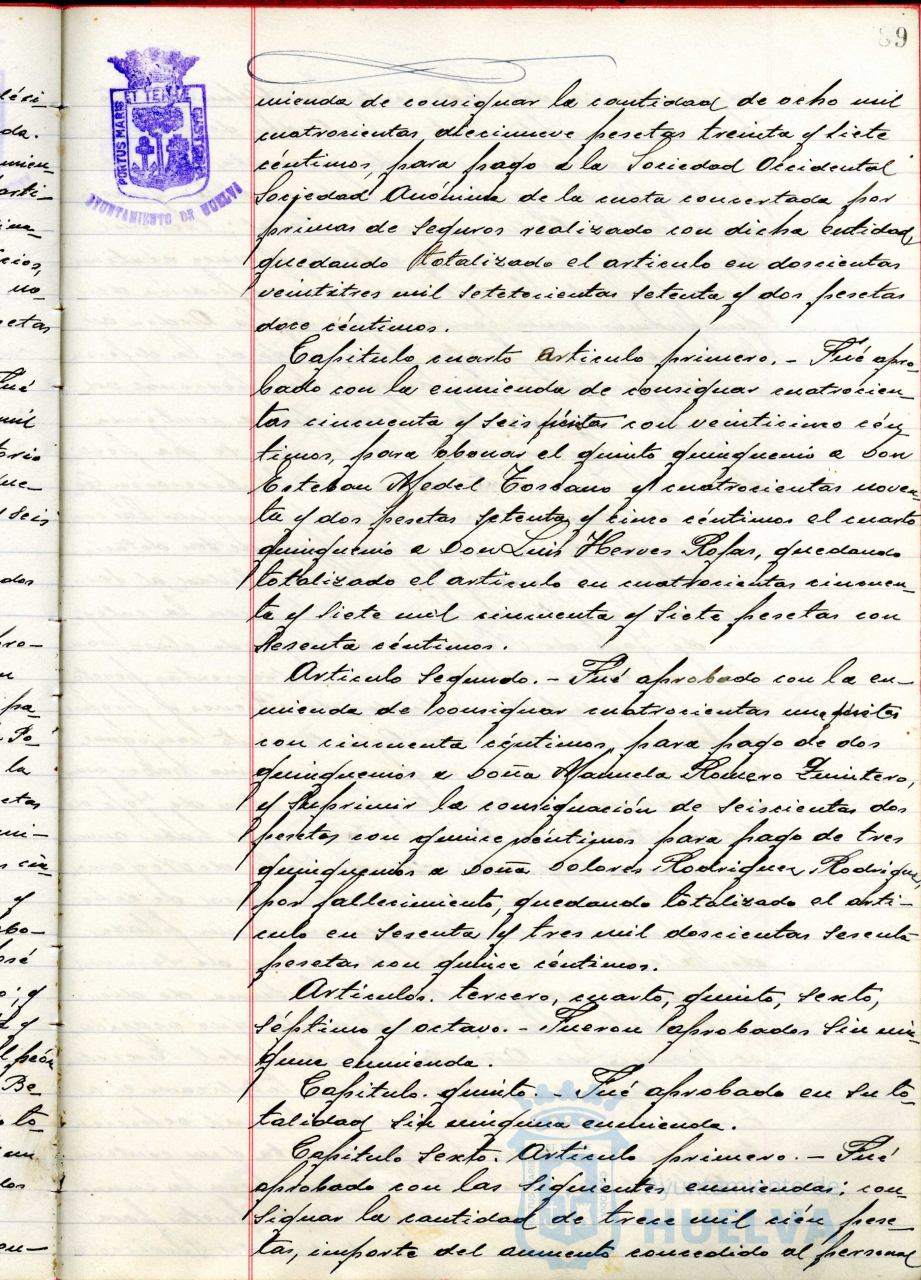 89
PORTUS MARIS ET TERRE CUSTODIA
AYUNTAMIENTO DE HUELVA
mienda de consignar la cantidad de ocho mil
cuatrocientas diecinueve pesetas treinta y siete
céntimos, para pago a la Sociedad Occidental
Sociedad Anónima de la cuota concertada por
primas de seguros realizado con dicha entidad
quedando totalizado el articulo en doscientas
veintitres mil setetecientas setenta y dos pesetas
doce céntimos.
Capitulo cuarto articulo primero. - Fué apro-
bado con la enmienda de consignar cuatrocien-
tas cincuenta y seis pesetas con veinticinco cén
timos, para abonar el quinto quinquenio a Don
Esteban Medel Toscano y cuatrocientas noven-
ta y dos pesetas setenta y cinco céntimos el cuarto
quinquenio a Don Luis Herves Rojas, quedando
totalizado el articulo en cuatrocientas cincuen-
ta y siete mil cincuenta y siete pesetas con
sesenta céntimos.
Articulo segundo. - Fué aprobado con la en-
mienda de consignar cuatrocientas una pesetas
con cincuenta céntimos, para pago de dos
quinquenios a Doña Manuela Romero Quintero,
y suprimir la consignación de seiscientas dos
pesetas con quince céntimos para pago de tres
quinquenios a Doña Dolores Rodriguez Rodriguez,
por fallecimiento, quedando totalizado el arti-
culo en sesenta y tres mil doscientas sesenta
pesetas con quince céntimos.
Artículos. tercero, cuarto, quinto, sexto,
séptimo y octavo. - Fueron aprobados sin nin-
guna enmienda.
Capitulo. quinto. - Fué aprobado en su to-
talidad sin ninguna enmienda.
Capitulo sexto. Articulo primero. - Fué
aprobado con las siguientes enmiendas: con-
signar la cantidad de trece mil cién pese-
tas, importe del aumento concedido al personal
Ayuntamiento de
HUELVA